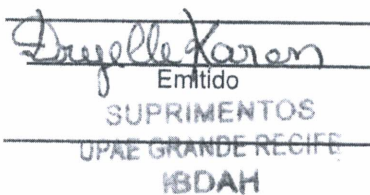 Karen
Emitido
SUPRIMENTOS
UPAE GRANDE RECIFE
IBDAH